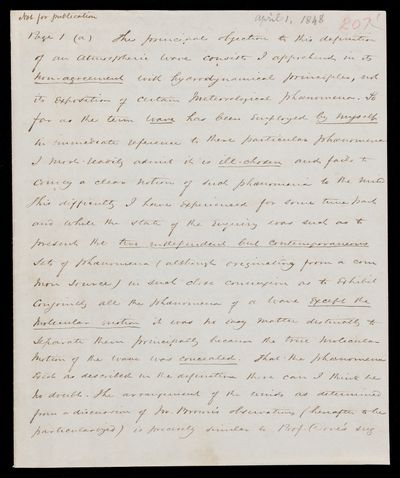 Not for publication
April 1, 1848
207
Page 1 (a) The principal objection to this definition
of an atmospheric wave consists I apprehend in its
non-agreement with hydrodynamical principles, not
its exposition of certain Meteorological phænomena. So
far as the term wave has been employed by myself
in immediate reference to these particular phænomena
I most readily admit it is ill-chosen and fails to
convey a clear notion of such phænomena to the mind
this difficulty I have experienced for some time past
and while the state of the enquiry was such as to
present the two independent but contemporaneous
sets of phænomena (although originating from a com
mon source) in such close connexion as to exhibit
conjointly all the phænomena of a wave except the
molecular motion it was no easy matter distinctly to
separate them principally because the true molecular
motion of the wave was concealed. That the phænomena
exist as described in the definition there can I think be
no doubt. The arrangement of the winds as determined
from a discussion of Mr. Brown's observations (hereafter to be
particularized) is precisely similar to Prof. Dove's sug